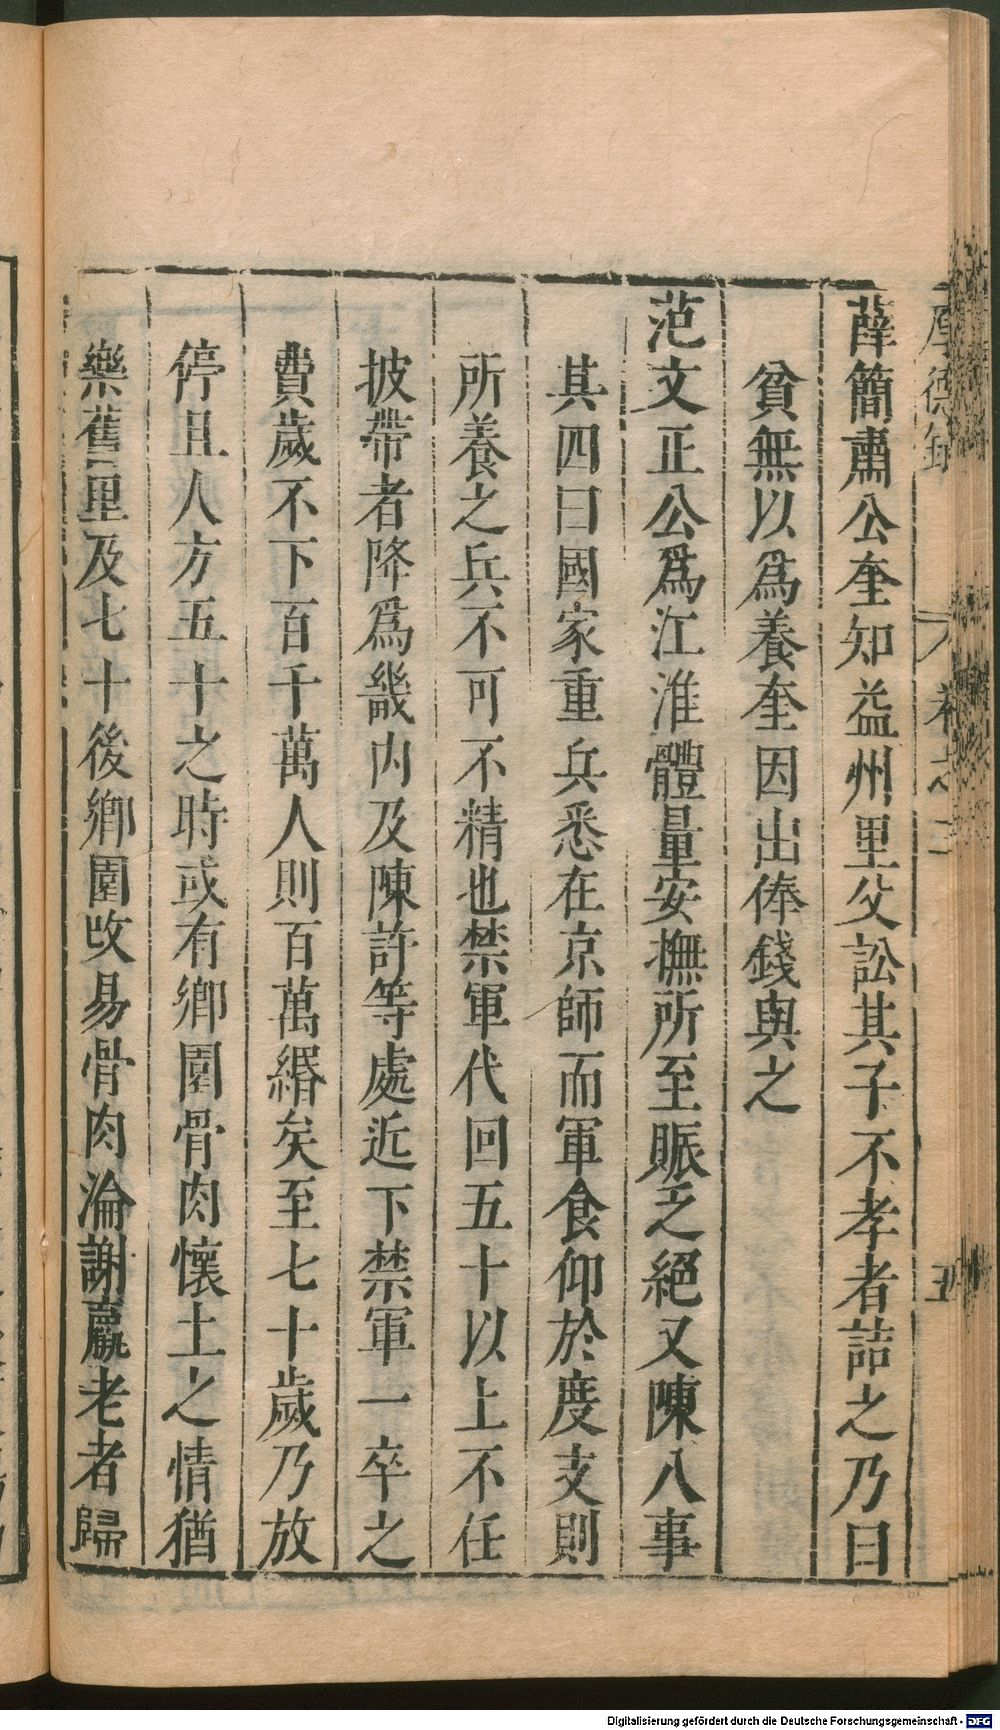 厚德錄 卷之二 五
薛簡肅公奎知益州里父訟其子不孝者詰之乃曰
貧無以爲養奎因出俸錢與之
范文正公爲江淮體量安撫所至賑乏絕又陳八事
其四曰國家重兵悉在京師而軍食仰於度支則
所養之兵不可不精也禁軍代回五十以上不任
披帶者降爲畿内及陳許等處近下禁軍一卒之
費歲不下百千萬人則百萬緡矣至七十歲乃放
停且人方五十之時或有鄉園骨肉懷土之情猶
樂舊里及七十後鄉園改易骨肉淪謝羸老者歸
Digitalisierung gefördert durch die Deutsche Forschungsgemeinschaft - DFG